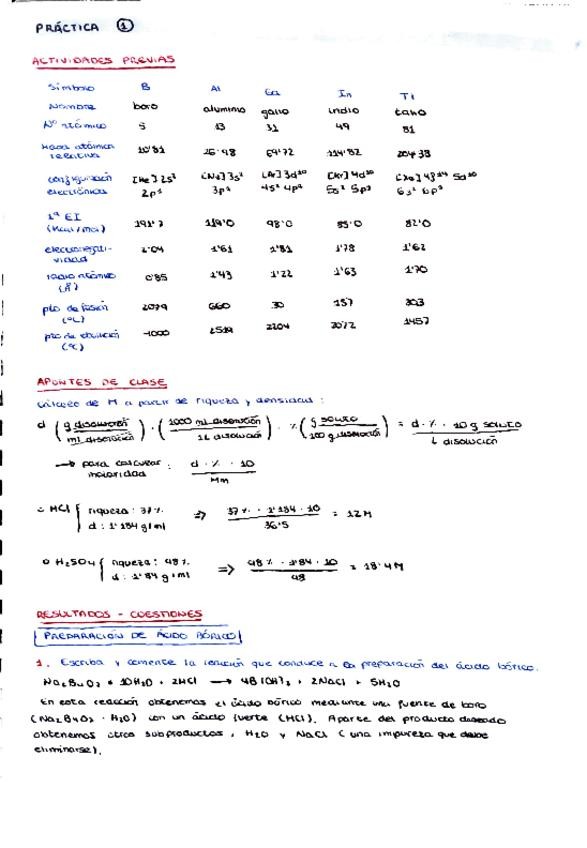 PRÁCTICA ①
ACTIVIDADES PREVIAS
Símbolo B Al Ga In Tl
Nombre boro aluminio galio indio talio
Nº atómico 5 13 31 49 81
Masa atómica relativa 10'81 26'98 69'72 114'82 204'38
Configuración electrónica [He] 2s² 2p¹ [Ne] 3s² 3p¹ [Ar] 3d¹⁰ 4s² 4p¹ [Kr] 4d¹⁰ 5s² 5p¹ [Xe] 4f¹⁴ 5d¹⁰ 6s² 6p¹
1ª EI (Kcal/mol) 191'2 119'0 98'0 85'0 82'0
electronegatividad 2'04 1'61 1'81 1'78 1'62
radio atómico (Å) 0'85 1'43 1'22 1'63 1'70
pto de fusión (ºC) 2079 660 30 157 303
pto de ebullición (ºC) 2519 2204 2072 1457
APUNTES DE CLASE
Cálculo de M a partir de riqueza y densidad:
d (g disolución / ml disolución) · (1000 ml disolución / 1L disolución) · % (g soluto / 100 g disolución) = d · % · 10 g soluto / L disolución
→ para calcular molaridad: d · % · 10 / Mm
○ HCl { riqueza: 37% d: 1'184 g/ml ⇒ 37% · 1'184 · 10 / 36'5 = 12M
○ H₂SO₄ { riqueza: 98% d: 1'84 g/ml ⇒ 98% · 1'84 · 10 / 98 = 18'4M
RESULTADOS - CUESTIONES
PREPARACIÓN DE ÁCIDO BÓRICO
1. Escriba y comente la reacción que conduce a la preparación del ácido bórico.
Na₂B₄O₇ · 10H₂O + 2HCl → 4B(OH)₃ + 2NaCl + 5H₂O
En esta reacción obtenemos el ácido bórico mediante una fuente de boro
(Na₂B₄O₇ · H₂O) con un ácido fuerte (HCl). Aparte del producto deseado
obtenemos otros subproductos, H₂O y NaCl (una impureza que debe
eliminarse).